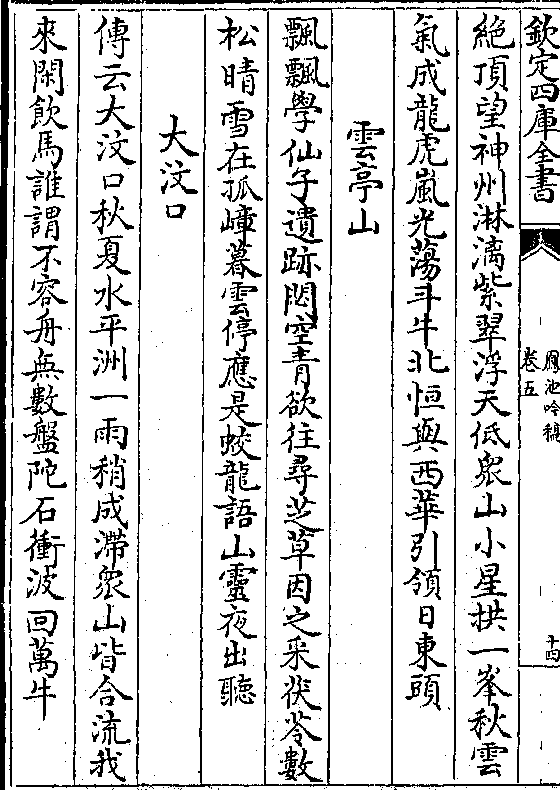 欽定四庫全書
鳳池吟稿
卷五
十四
絶頂望神州淋漓紫翠浮天低衆山小星拱一峯秋雲
氣成龍虎嵐光蕩斗牛北恒與西華引領日東頭
雲亭山
飄飄學仙子遺跡閟空青欲往尋芝草因之采茯苓數
松晴雪在孤嶂暮雲停應是蛟龍語山靈夜出聽
大汶口
傳云大汶口秋夏水平洲一雨稍成滯衆山皆合流我
來閑飲馬誰謂不容舟無數盤陀石衝波回萬牛